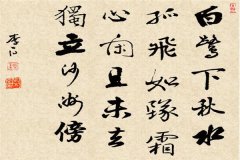 白鷺下秋水
孤飛如墜霜
心閑且未去
獨立沙洲傍
李白